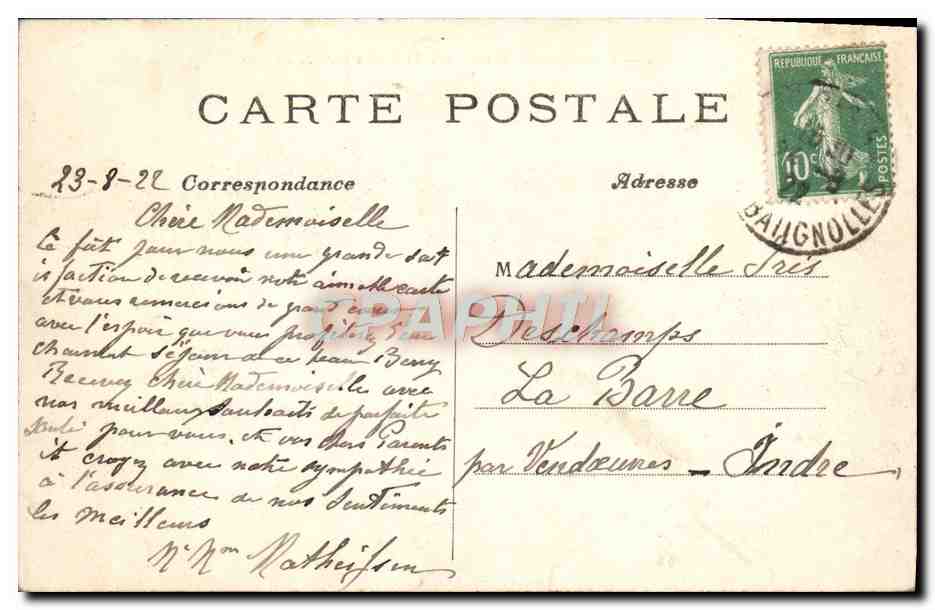 CARTE POSTALE
REPUBLIQUE FRANÇAISE
10c
POSTES
BATIGNOLLES
23-8-22 Correspondance
Adresse
Chère Mademoiselle
Ce fût pour nous une grande sat
isfaction de recevoir votre aimable carte
et vous remercions de grand coeur
avec l'espoir que vous profiterez d'un
charmant séjour de ce beau Berry
Recevez Chère Mademoiselle avec
nos meilleurs souhaits de parfaite
pour vous, et vos chers Parents
et croyez avec notre sympathie
à l'assurance de nos sentiments
les meilleurs
Mr Mme
Mademoiselle Iris
Deschamps
La Barre
par Vendoeuvres - Indre
CPAPHIL